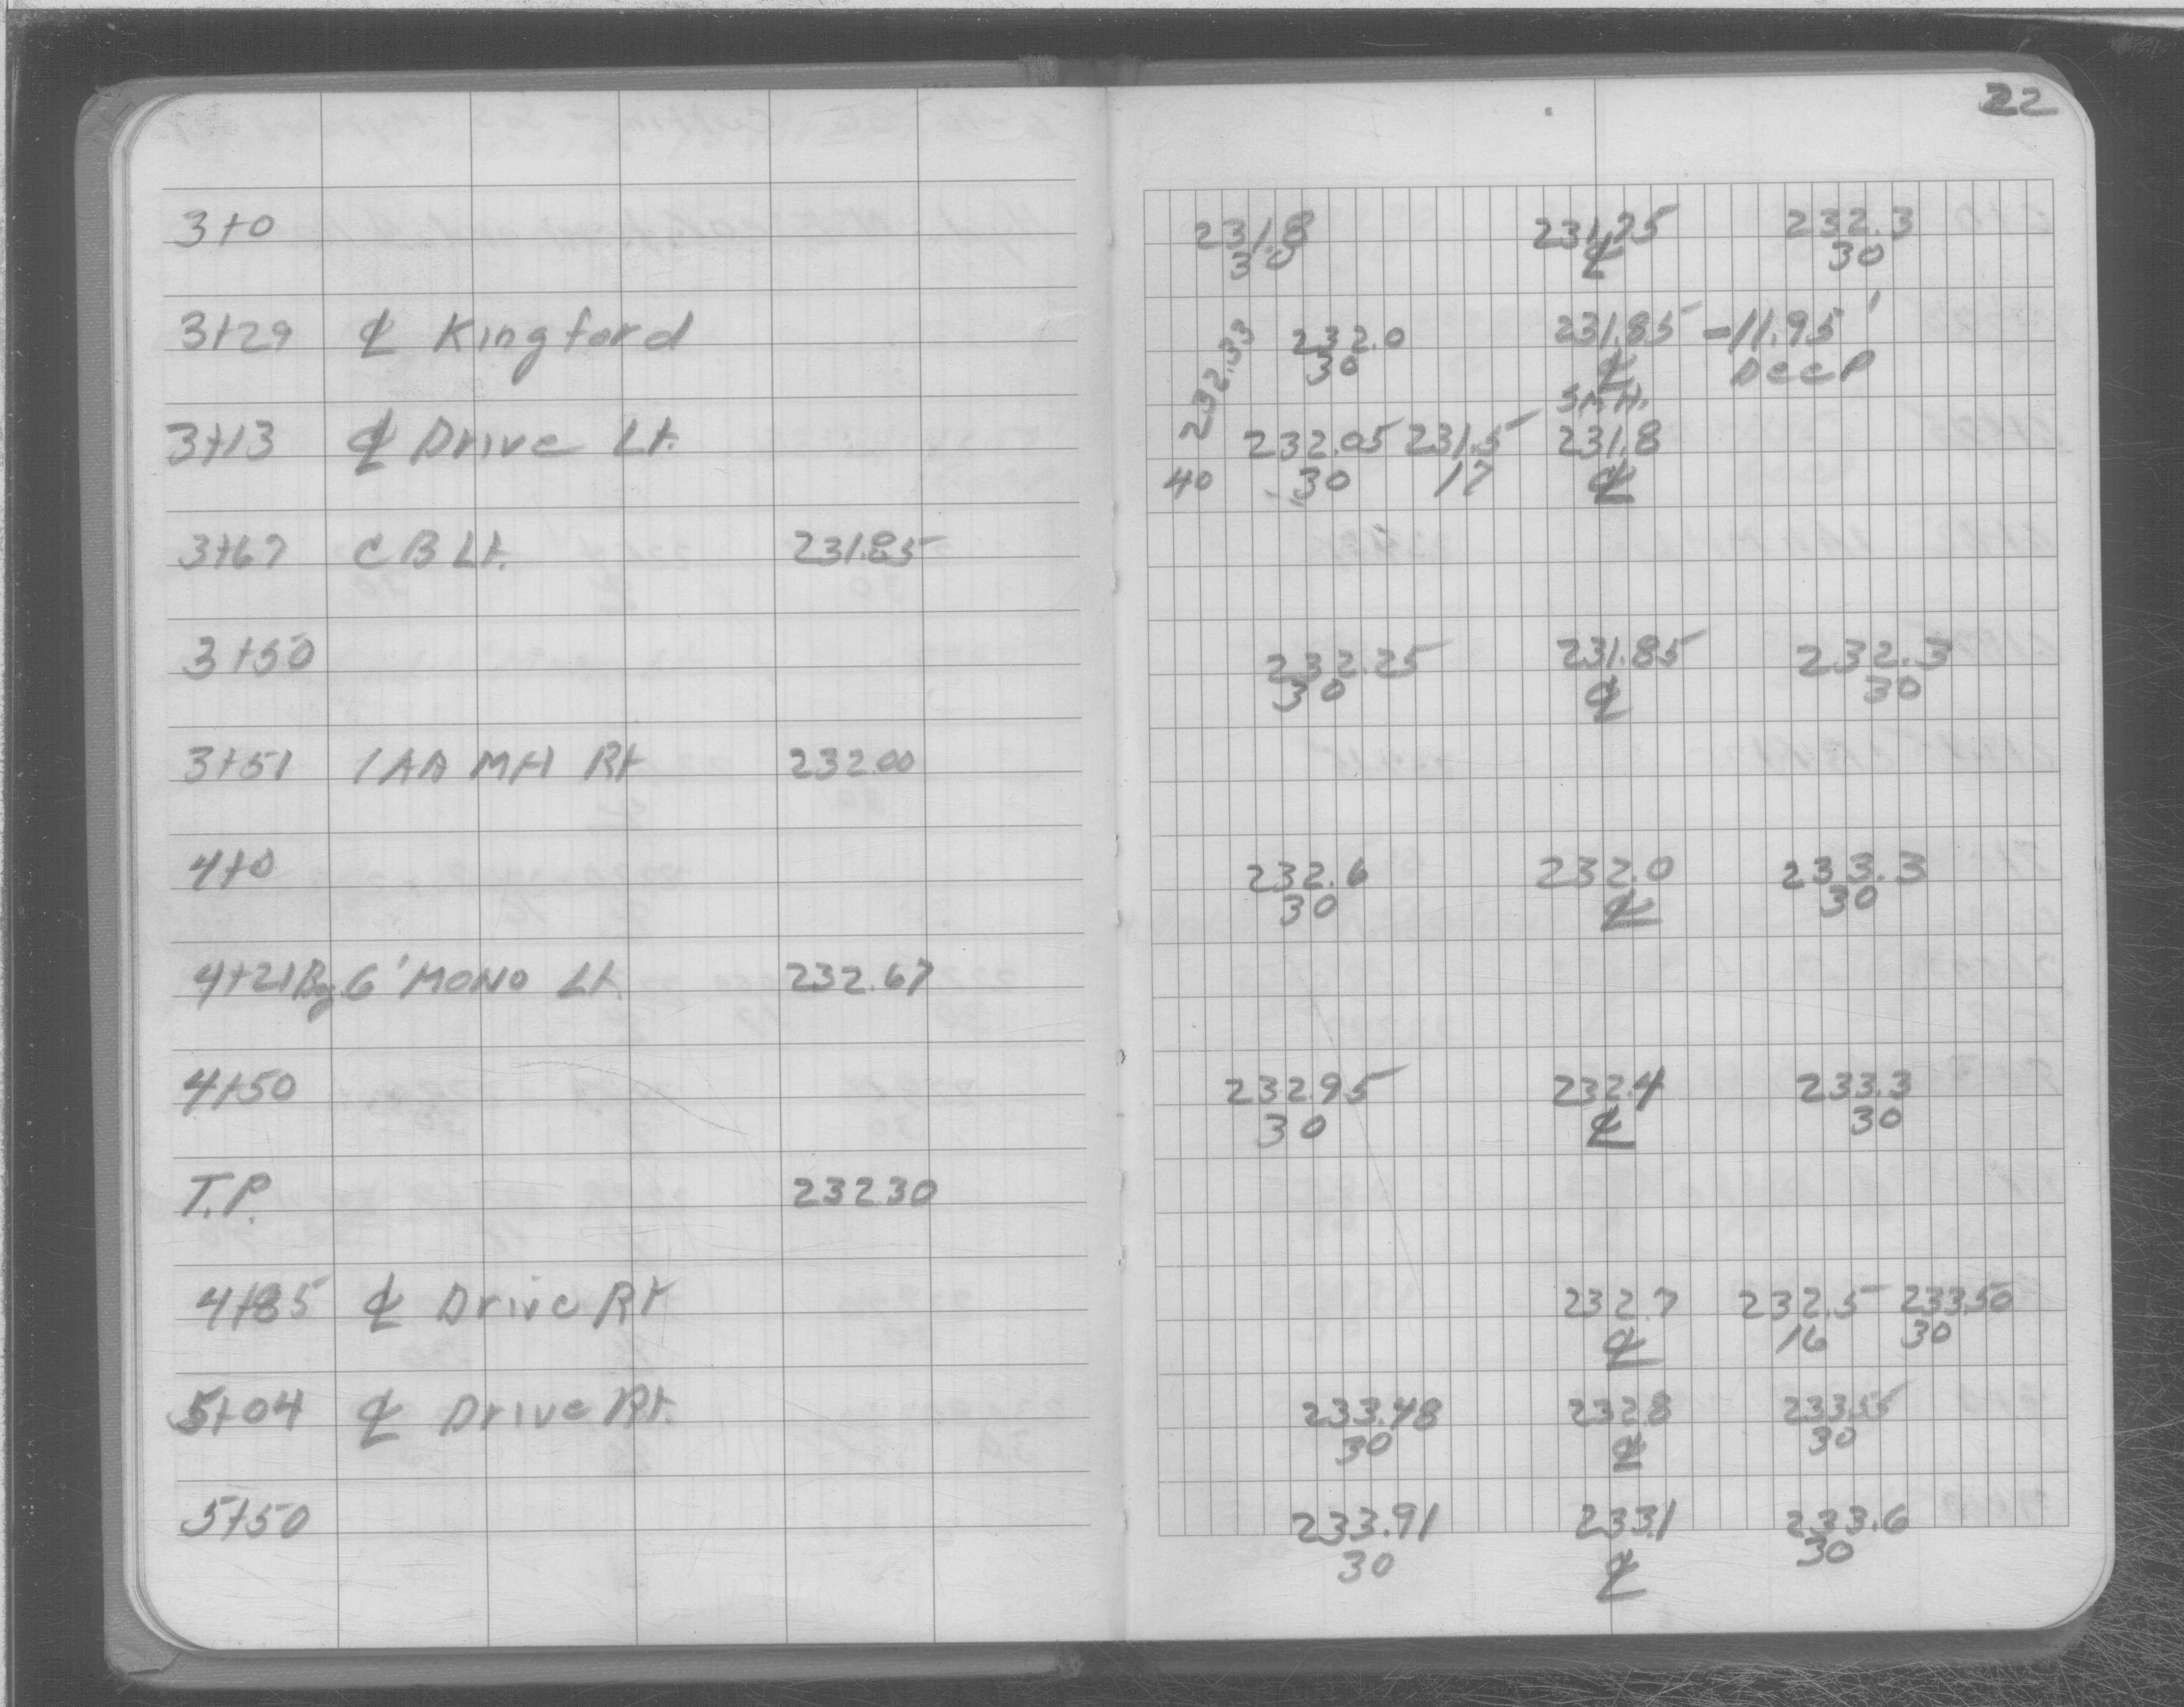 22
3+0 231.8 231.75 232.3
30 ℄ 30
3+29 ℄ Kingford 232.0 231.85 -11.95'
30 ℄ Deep
232.33 SMH.
3+13 ℄ Drive Lt. 232.05 231.5 231.8
40 30 17 ℄
3+67 CB Lt. 231.85
3+50 232.25 231.85 232.3
30 ℄ 30
3+51 1AA MH Rt 232.00
4+0 232.6 232.0 233.3
30 ℄ 30
4+21 Bg 6' MONO Lt. 232.67
4+50 232.95 232.4 233.3
30 ℄ 30
T.P. 232.30
4+85 ℄ Drive Rt 232.7 232.5 233.50
℄ 16 30
5+04 ℄ Drive Rt. 233.48 232.8 233.55
30 ℄ 30
5+50 233.91 233.1 233.6
30 ℄ 30